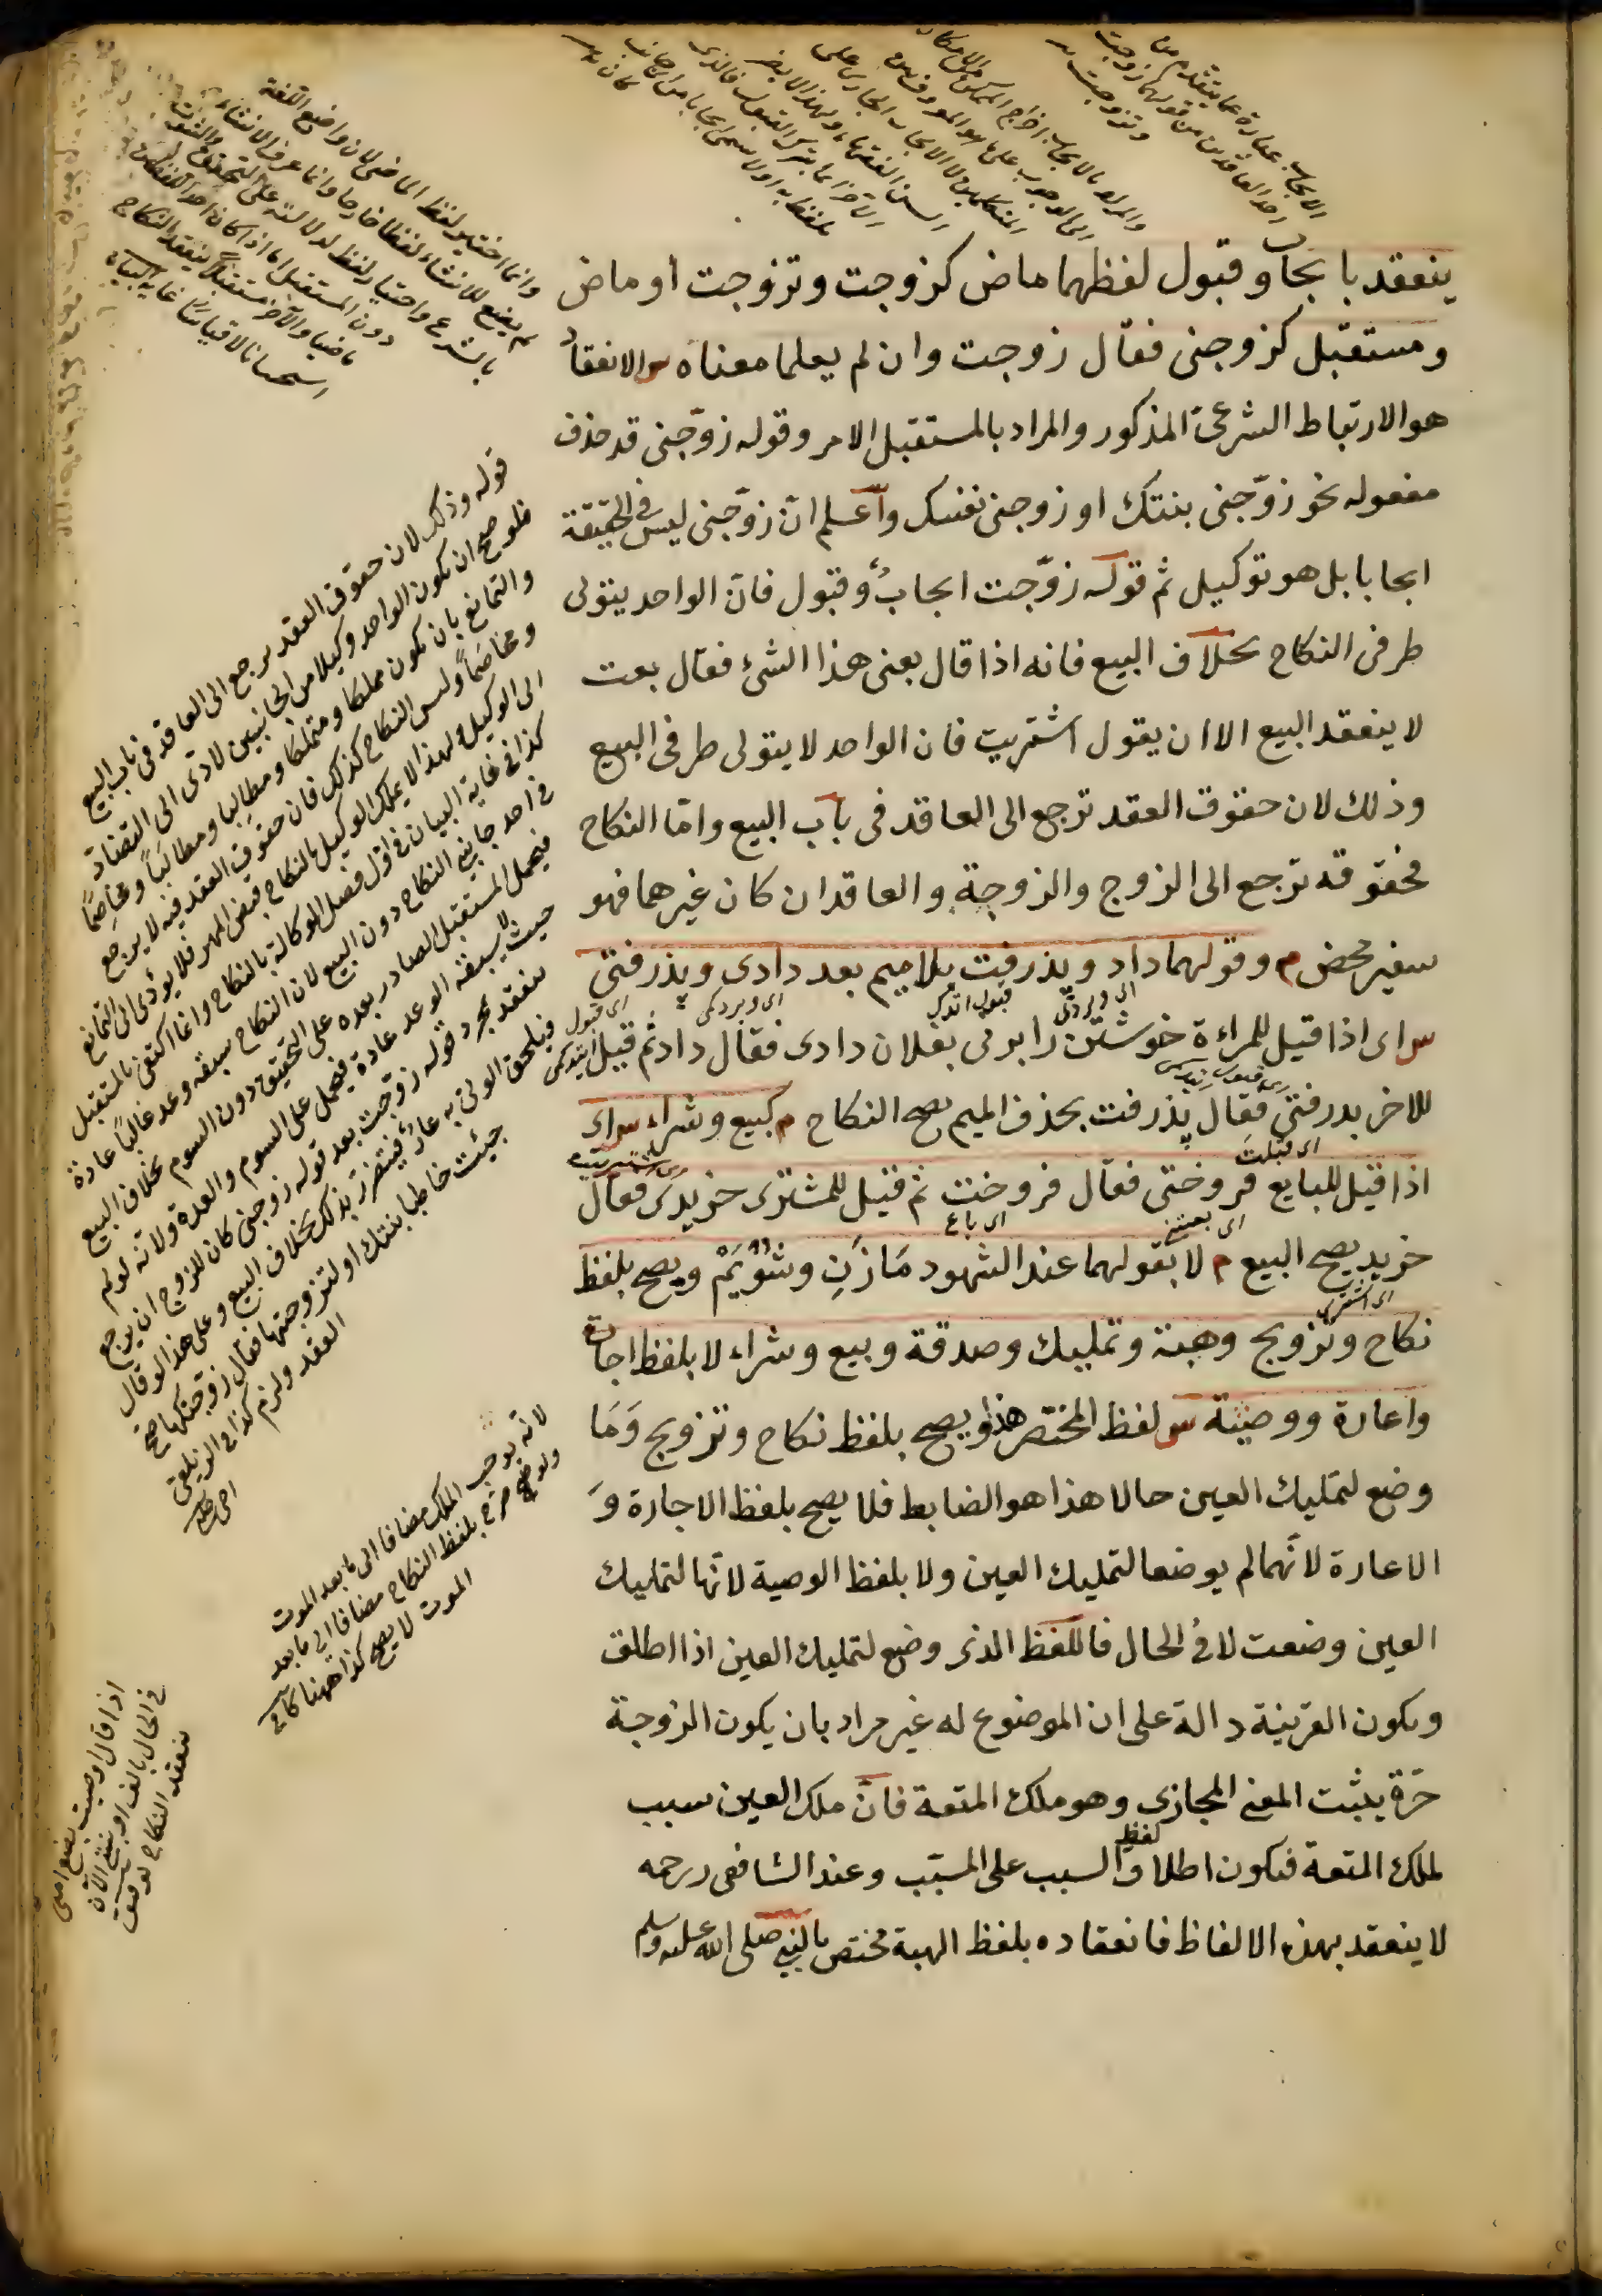 ينعقد بايجاب وقبول لفظهما ماض كزوجت وتزوجت او ماض
ومستقبل كزوجنى فقال زوجت وان لم يعلما معناه س الانعقاد
هو الارتباط الشرعىّ المذكور والمراد بالمستقبل الامر وقوله زوّجنى قد حذف
مفعوله نحو زوّجنى بنتك او زوجنى نفسك وآعلم انّ زوّجنى ليس فى الحقيقة
ايجابا بل هو توكيل ثم قوله زوّجت ايجابٌ وقبول فانّ الواحد يتولى
طرفى النكاح بخلاف البيع فانه اذا قال بعنى هذا الشئ فقال بعت
لا ينعقد البيع الا ان يقول اشتريت فان الواحد لا يتولى طرفى البيع
وذلك لان حقوق العقد ترجع الى العاقد فى باب البيع وامّا النكاح
فحقوقه ترجع الى الزوج والزوجة والعاقد ان كان غيرهما فهو
سفير محض م وقولهما داد وپذرفت بلا ميم بعد دادى وپذرفتى
س اى اذا قيل للمراءة خوشتن را بزنى بفلان دادى فقال داد ثم قيل
للاخر پدرفتى فقال پذرفت بحذف الميم يصح النكاح م كبيع وشراء س اى
اذا قيل للبايع فروختى فقال فروخت ثم قيل للمشترى خريدى فقال
خريد يصح البيع م لا بقولهما عند الشهود مَا زَنِ وشويَمْ ويصح بلفظ
نكاح وتزويج وهبة وتمليك وصدقة وبيع وشراء لا بلفظ اجارة
واعارة ووصيّة س لفظ المختصر هذا ويصح بلفظ نكاح وتزويج وَمَا
وضع لتمليك العين حالا هذا هو الضابط فلا يصح بلفظ الاجارة وَ
الاعارة لانّهما لم يوضعا لتمليك العين ولا بلفظ الوصية لانّها لتمليك
العين وضعت لا فى الحال فاللفظ الذى وضع لتمليك العين اذا اطلق
ويكون القرينة دالة على ان الموضوع له غير مراد بان يكون الزوجة
حرّة يثبت المعنى المجازى وهو ملك المتعة فانّ ملك العين سبب
لملك المتعة فيكون اطلاق لفظ السبب على المسبّب وعند الشافعى رحمه
لا ينعقد بهذه الالفاظ فانعقاده بلفظ الهبة مختص بالنبى صلى الله عليه وسلم
الايجاب عبارة عما يتقدم من
احد العاقدين من قولهما زوجت
وتزوجت
وانما اختير لفظ الماضى لان واضع اللغة
لم يضع للانشاء لفظا خاصا وانما عرف الانشاء
بالشرع واختيار لفظ لدلالته على التحقيق والثبوت
دون المستقبل اما اذا كان احد اللفظين
ماضيا والآخر مستقبلا ينعقد النكاح
استحسانا لا قياسًا غاية البيان
قوله وذلك لان حقوق العقد يرجع الى العاقد فى باب البيع
فلو صح ان يكون الواحد وكيلا من الجانبين لادّى الى التضادّ
والتمانع بان يكون مملكا ومتملكا ومطالِبا ومطالَباً ومخاصِمًا
ومخاصَماً وليس النكاح كذلك فان حقوق العقد فيه لا يرجع
الى الوكيل ولهذا لا يملك الوكيل بالنكاح قبض المهر فلا يؤدى الى التمانع
كذا فى غاية البيان فى اوّل فصل الوكالة بالنكاح وانما اكتفى بالمستقبل
فى احد جانبى النكاح دون البيع لان النكاح يسبقه وعد غالباً عادة
فيحمل المستقبل الصادر بعده على التحقيق دون السوم بخلاف البيع
حيث لا يسبقه الوعد عادة فيحمل على السوم والعدة ولانّه لو لم
ينعقد بمجرد قوله زوجت بعد قوله زوجنى كان للزوج ان يرجع
فيلحق الولى به عارٌ فيتضرّر بذلك بخلاف البيع وعلى هذا لو قال
جيئت خاطبا بنتك او لتزوجنيها فقال زوجتكها صح
العقد ولزم كذا فى الزيلعى
لانّه يوجب الملك مضافا الى ما بعد الموت
ولو صرّح بلفظ النكاح مضافا الى ما بعد
الموت لا يصح كذا ههنا كافى
اذا قال اوصيت بضع امتى
فى الحال بالف الآن
ينعقد النكاح